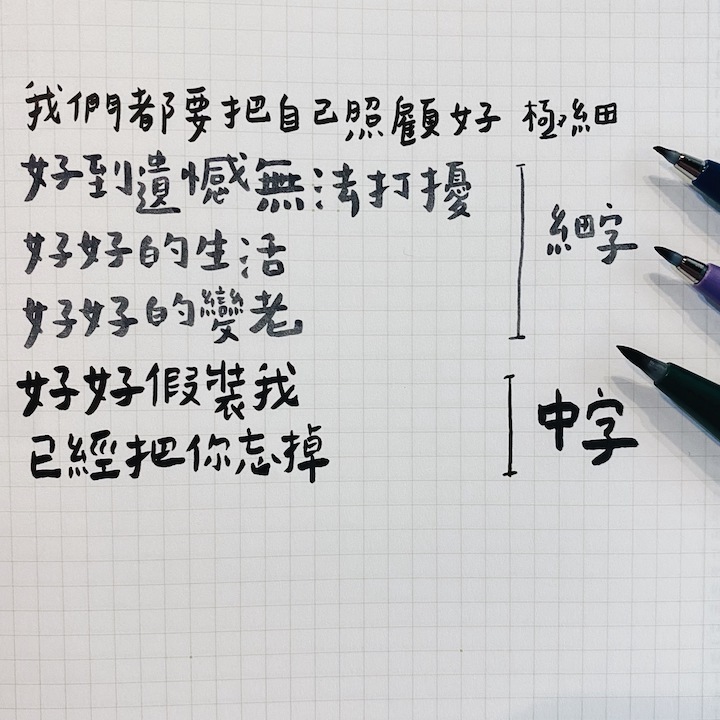 我們都要把自己照顧好 極細
好到遺憾無法打擾
好好的生活
好好的變老
細字
好好假裝我
已經把你忘掉
中字